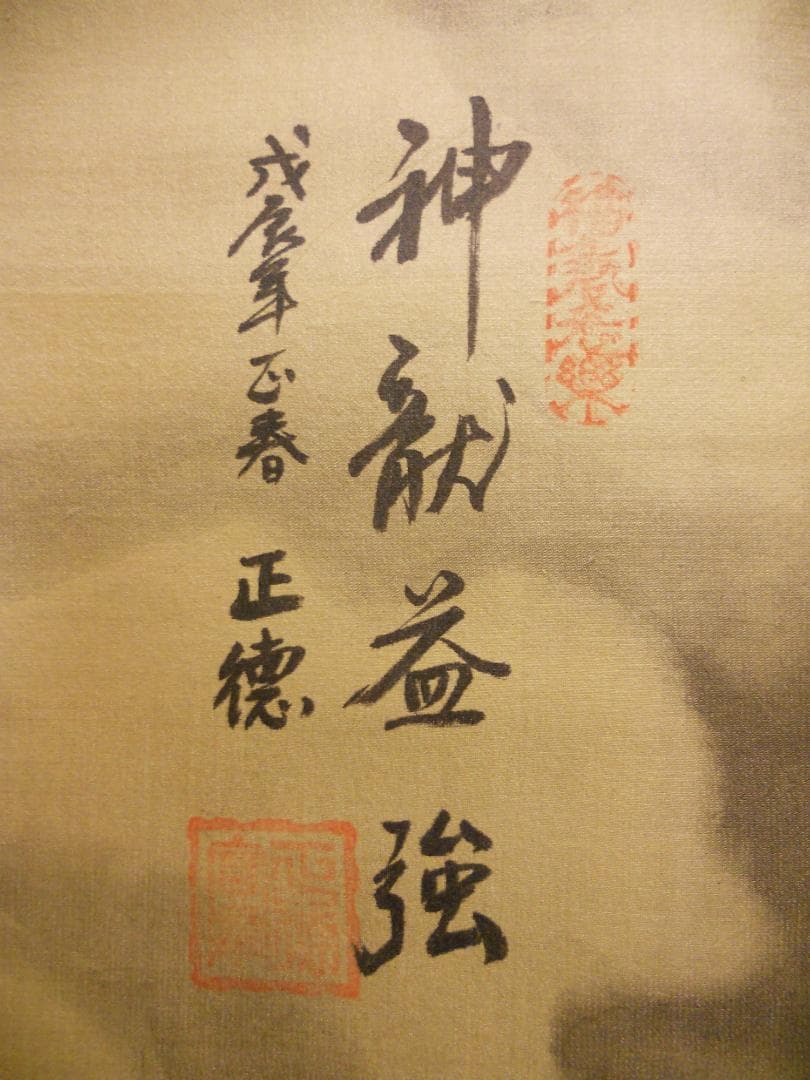 神龍益強
戊辰年正春 正德